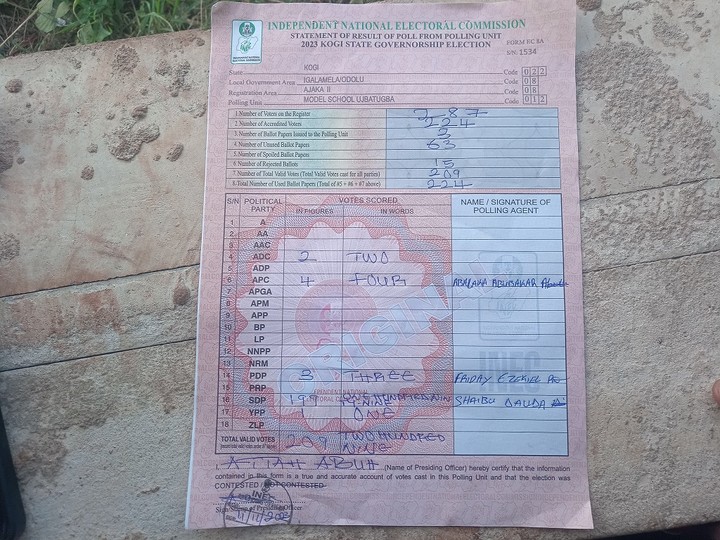 INDEPENDENT NATIONAL ELECTORAL COMMISSION
STATEMENT OF RESULT OF POLL FROM POLLING UNIT
2023 KOGI STATE GOVERNORSHIP ELECTION
FORM EC 8A
S/N: 1534
State KOGI Code 0 2 2
Local Government Area IGALAMELA/ODOLU Code 0 8
Registration Area AJAKA II Code 0 8
Polling Unit MODEL SCHOOL UJBATUGBA Code 0 1 2
1.Number of Voters on the Register 287
2.Number of Accredited Voters 224
3.Number of Ballot Papers Issued to the Polling Unit
4.Number of Unused Ballot Papers 63
5.Number of Spoiled Ballot Papers
6.Number of Rejected Ballots 15
7.Number of Total Valid Votes (Total Valid Votes cast for all parties) 209
8.Total Number of Used Ballot Papers (Total of #5 + #6 + #7 above) 224
S/N POLITICAL PARTY VOTES SCORED NAME / SIGNATURE OF POLLING AGENT
IN FIGURES IN WORDS
1. A
2. AA
3. AAC
4. ADC 2 TWO
5. ADP
6 APC 4 FOUR ABUBAKAR
7 APGA
8 APM
9 APP
10 BP
11 LP
12 NNPP
13 NRM
14 PDP 3 THREE FRIDAY EZEKIEL
15 PRP
16 SDP 199 ONE HUNDRED NIN SHAIBU DAUDA
TY-NINE
17 YPP 1 ONE
18 ZLP
TOTAL VALID VOTES 209 TWO HUNDRED
NINE
ORIGINAL
INEC
ATTAH ABUH (Name of Presiding Officer) hereby certify that the information
contained in this form is a true and accurate account of votes cast in this Polling Unit and that the election was
CONTESTED / NOT CONTESTED
INEC
Sign/Stamp of Presiding Officer
11/11/2023